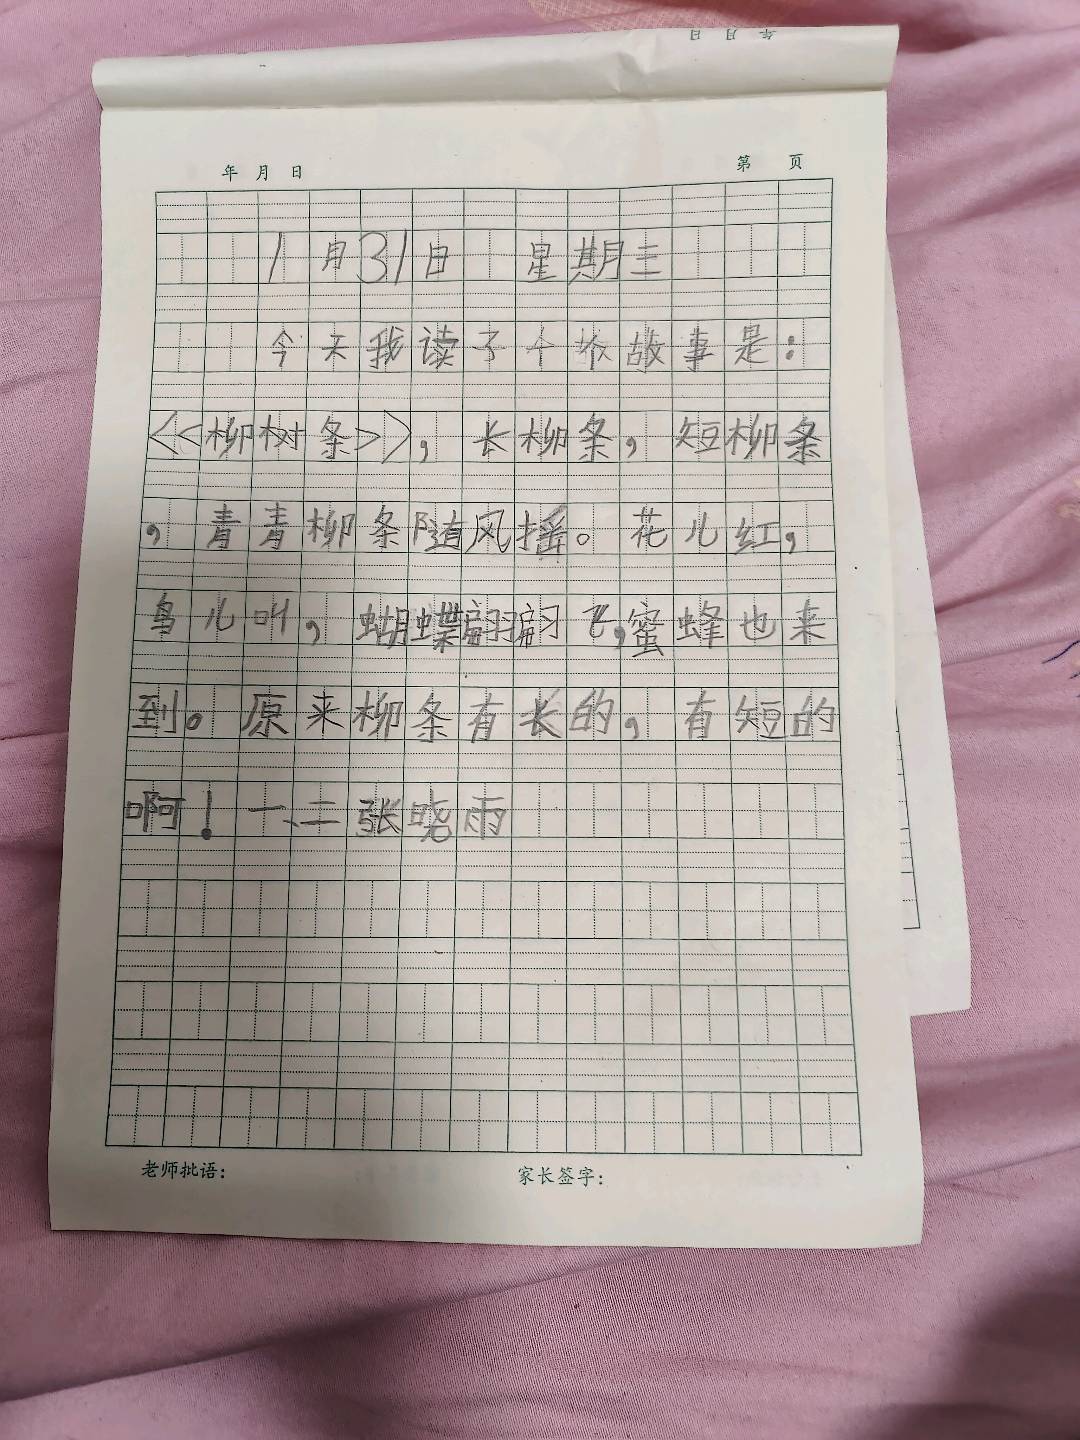 年 月 日
年 月 日 第 页
1月31日 星期三
今天我读了个故事是：
《柳树条》，长柳条，短柳条
，青青柳条随风摇。花儿红，
鸟儿叫，蝴蝶翩翩飞，蜜蜂也来
到。原来柳条有长的，有短的
啊！一、二张晓雨
老师批语： 家长签字：